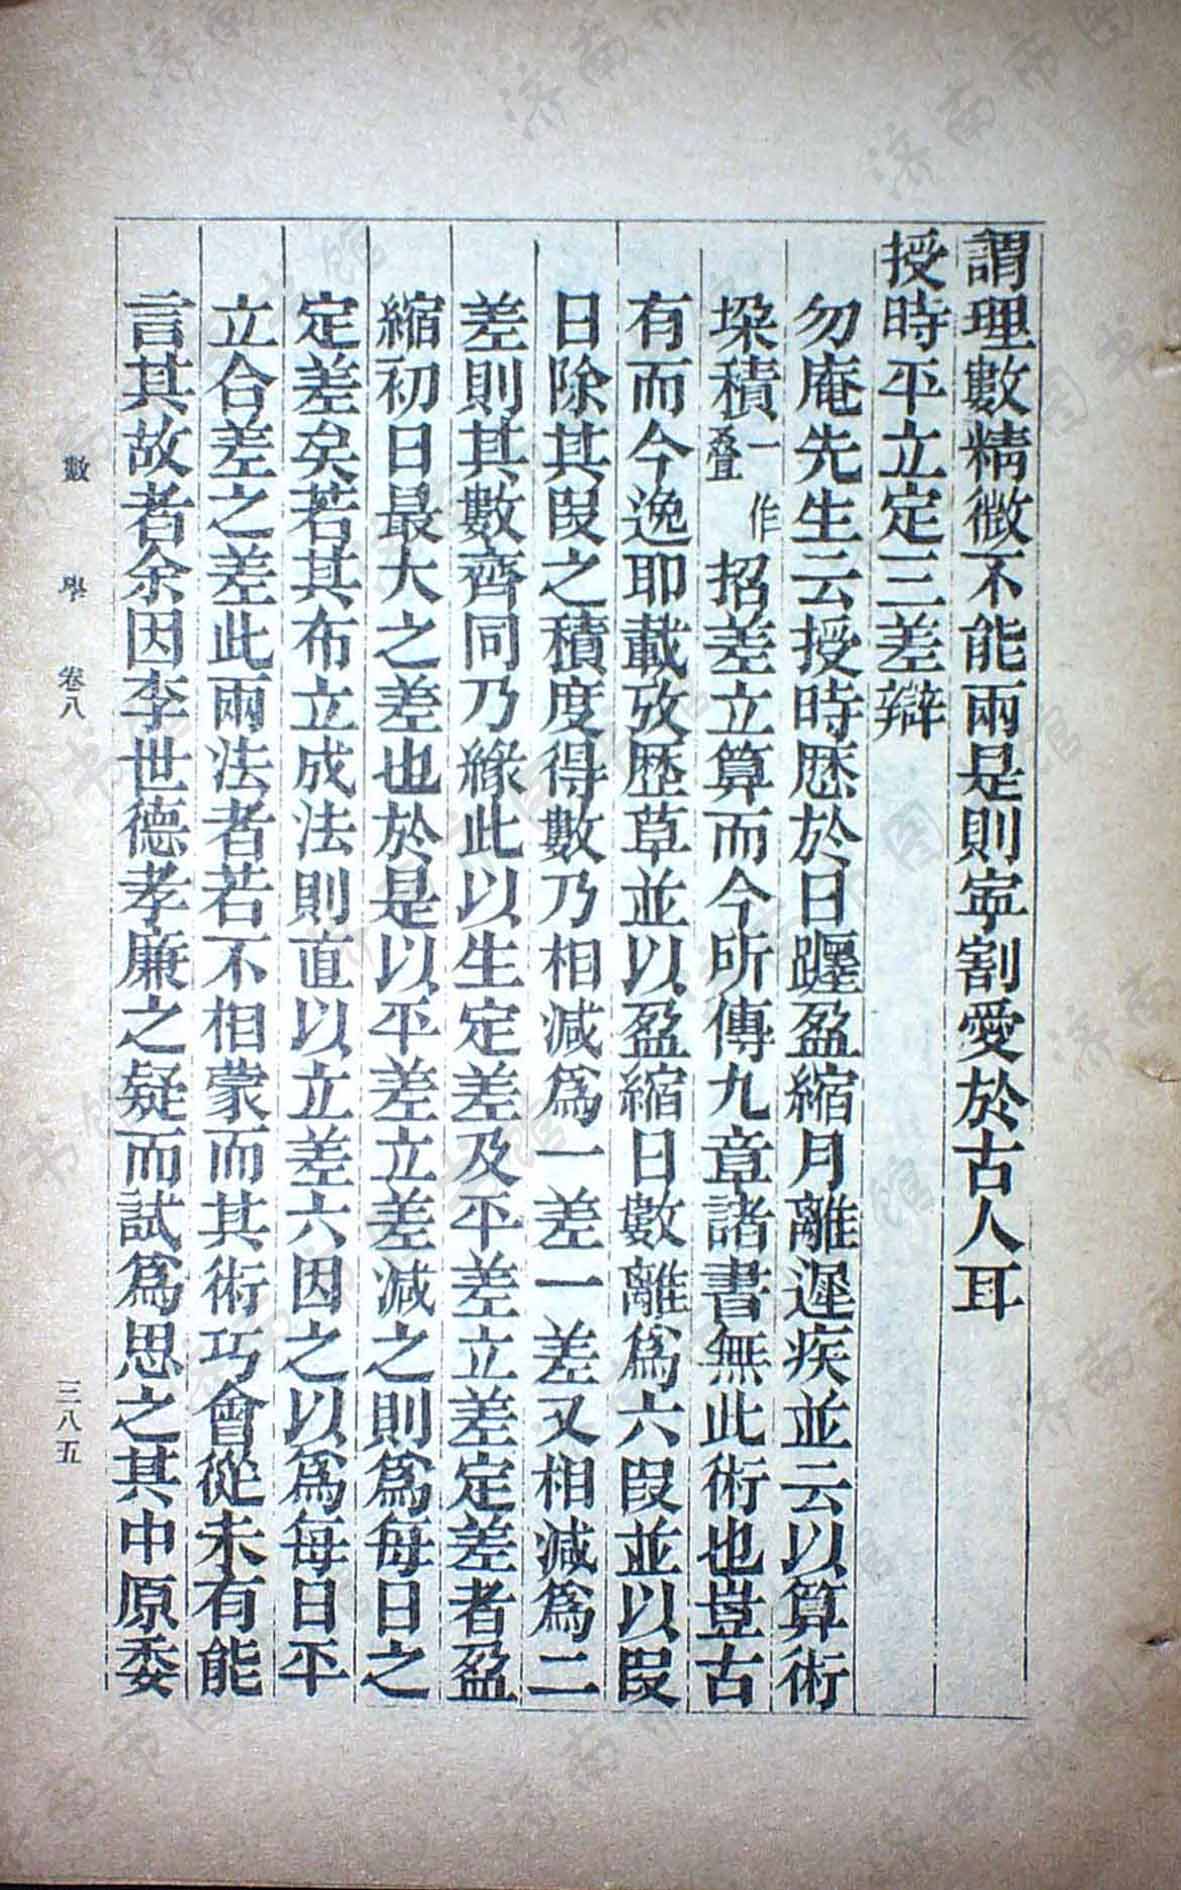 謂理數精微不能兩是則寜割愛於古人耳
授時平立定三差辯
勿庵先生云授時厯於日躔盈縮月離遲疾並云以算術
垜積一作叠招差立算而今所傳九章諸書無此術也豈古
有而今逸耶載攷歷草並以盈縮日數離爲六段並以段
日除其段之積度得數乃相减爲一差一差又相减爲二
差則其數齊同乃緣此以生定差及平差立差定差者盈
縮初日最大之差也於是以平差立差减之則爲每日之
定差矣若其布立成法則直以立差六因之以爲每日平
立合差之差此兩法者若不相蒙而其術巧會從未有能
言其故者余因李世德孝廉之疑而試爲思之其中原委
數學 卷八 三八五
济南市图书馆